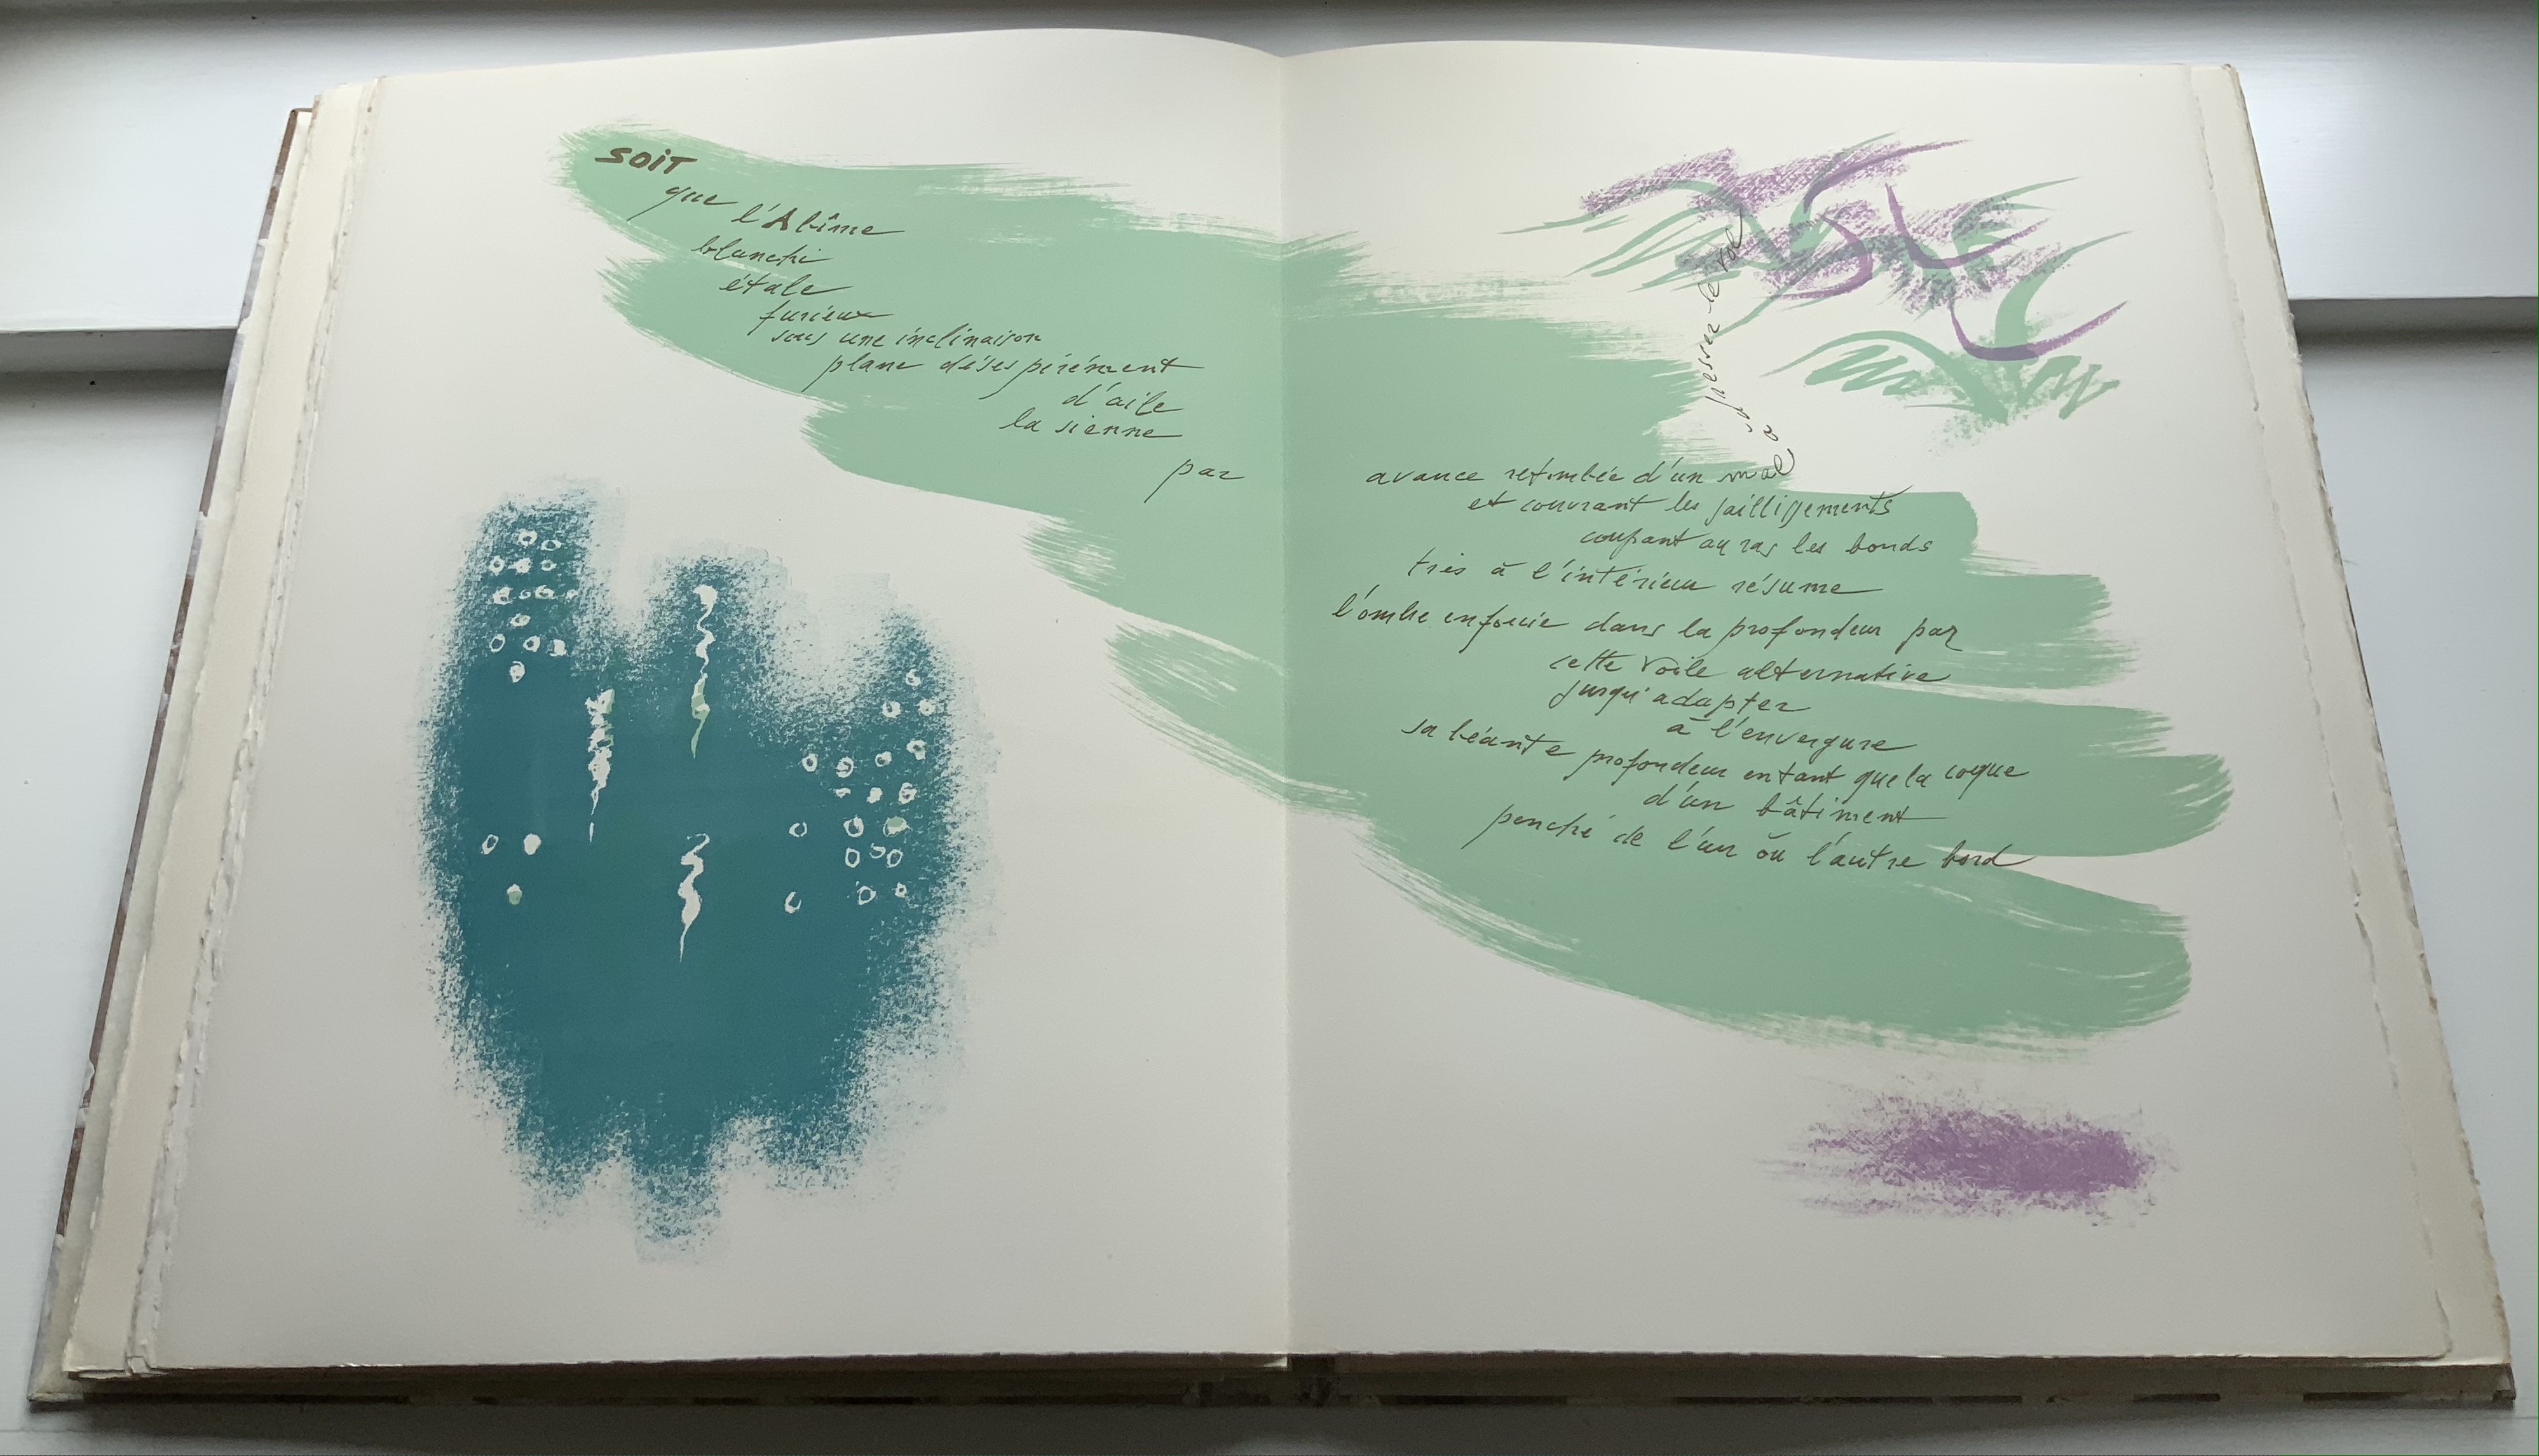 SOIT
que
l'Abîme
blanchi
étale
furieux
sous une inclinaison
plane désespérément
d'aile
la sienne
par
avance retombée d'un mal à dresser le vol
et couvrant les jaillissements
coupant au ras les bonds
très à l'intérieur résume
l'ombre enfouie dans la profondeur par
cette voile alternative
jusqu'adapter
à l'envergure
sa béante profondeur entant que la coque
d'un bâtiment
penché de l'un ou l'autre bord